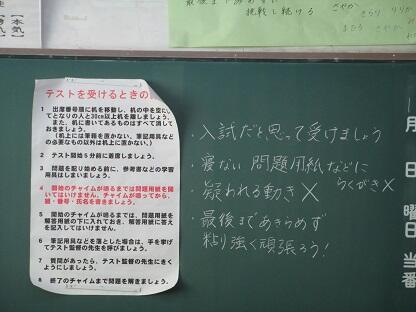 挑戦し続ける
さやか
テストを受けるときの
1 出席番号順に机を移動し、机の中を空に
してとなりの人と30cm以上机を離しましょう。
また、机に書いてあるものはすべて消して
おきましょう。
(机上には筆箱を置かない。筆記用具など
の必要なもの以外は机上に置かない。)
2 テスト開始5分前に着席しましょう。
3 問題を配り始める前に、参考書などの学習
用具はしまいましょう。
4 開始のチャイムが鳴るまでは問題用紙を開
いてはいけません。チャイムが鳴ってから、
級・番号・氏名を書きましょう。
5 開始のチャイムが鳴るまでは、問題用紙を
解答用紙の下に入れておき、解答用紙に答え
を記入してはいけません。
6 筆記用具などを落とした場合は、手を挙げ
てテスト監督の先生を呼びましょう。
7 質問があったら、テスト監督の先生にきく
ようにしましょう。
8 終了のチャイムまで問題を解きましょう。
・入試だと思って受けましょう
・寝ない 問題用紙などに
らくがき×
・疑われる動き×
・最後まであきらめず
粘り強く頑張ろう!
月
日
曜日
当番